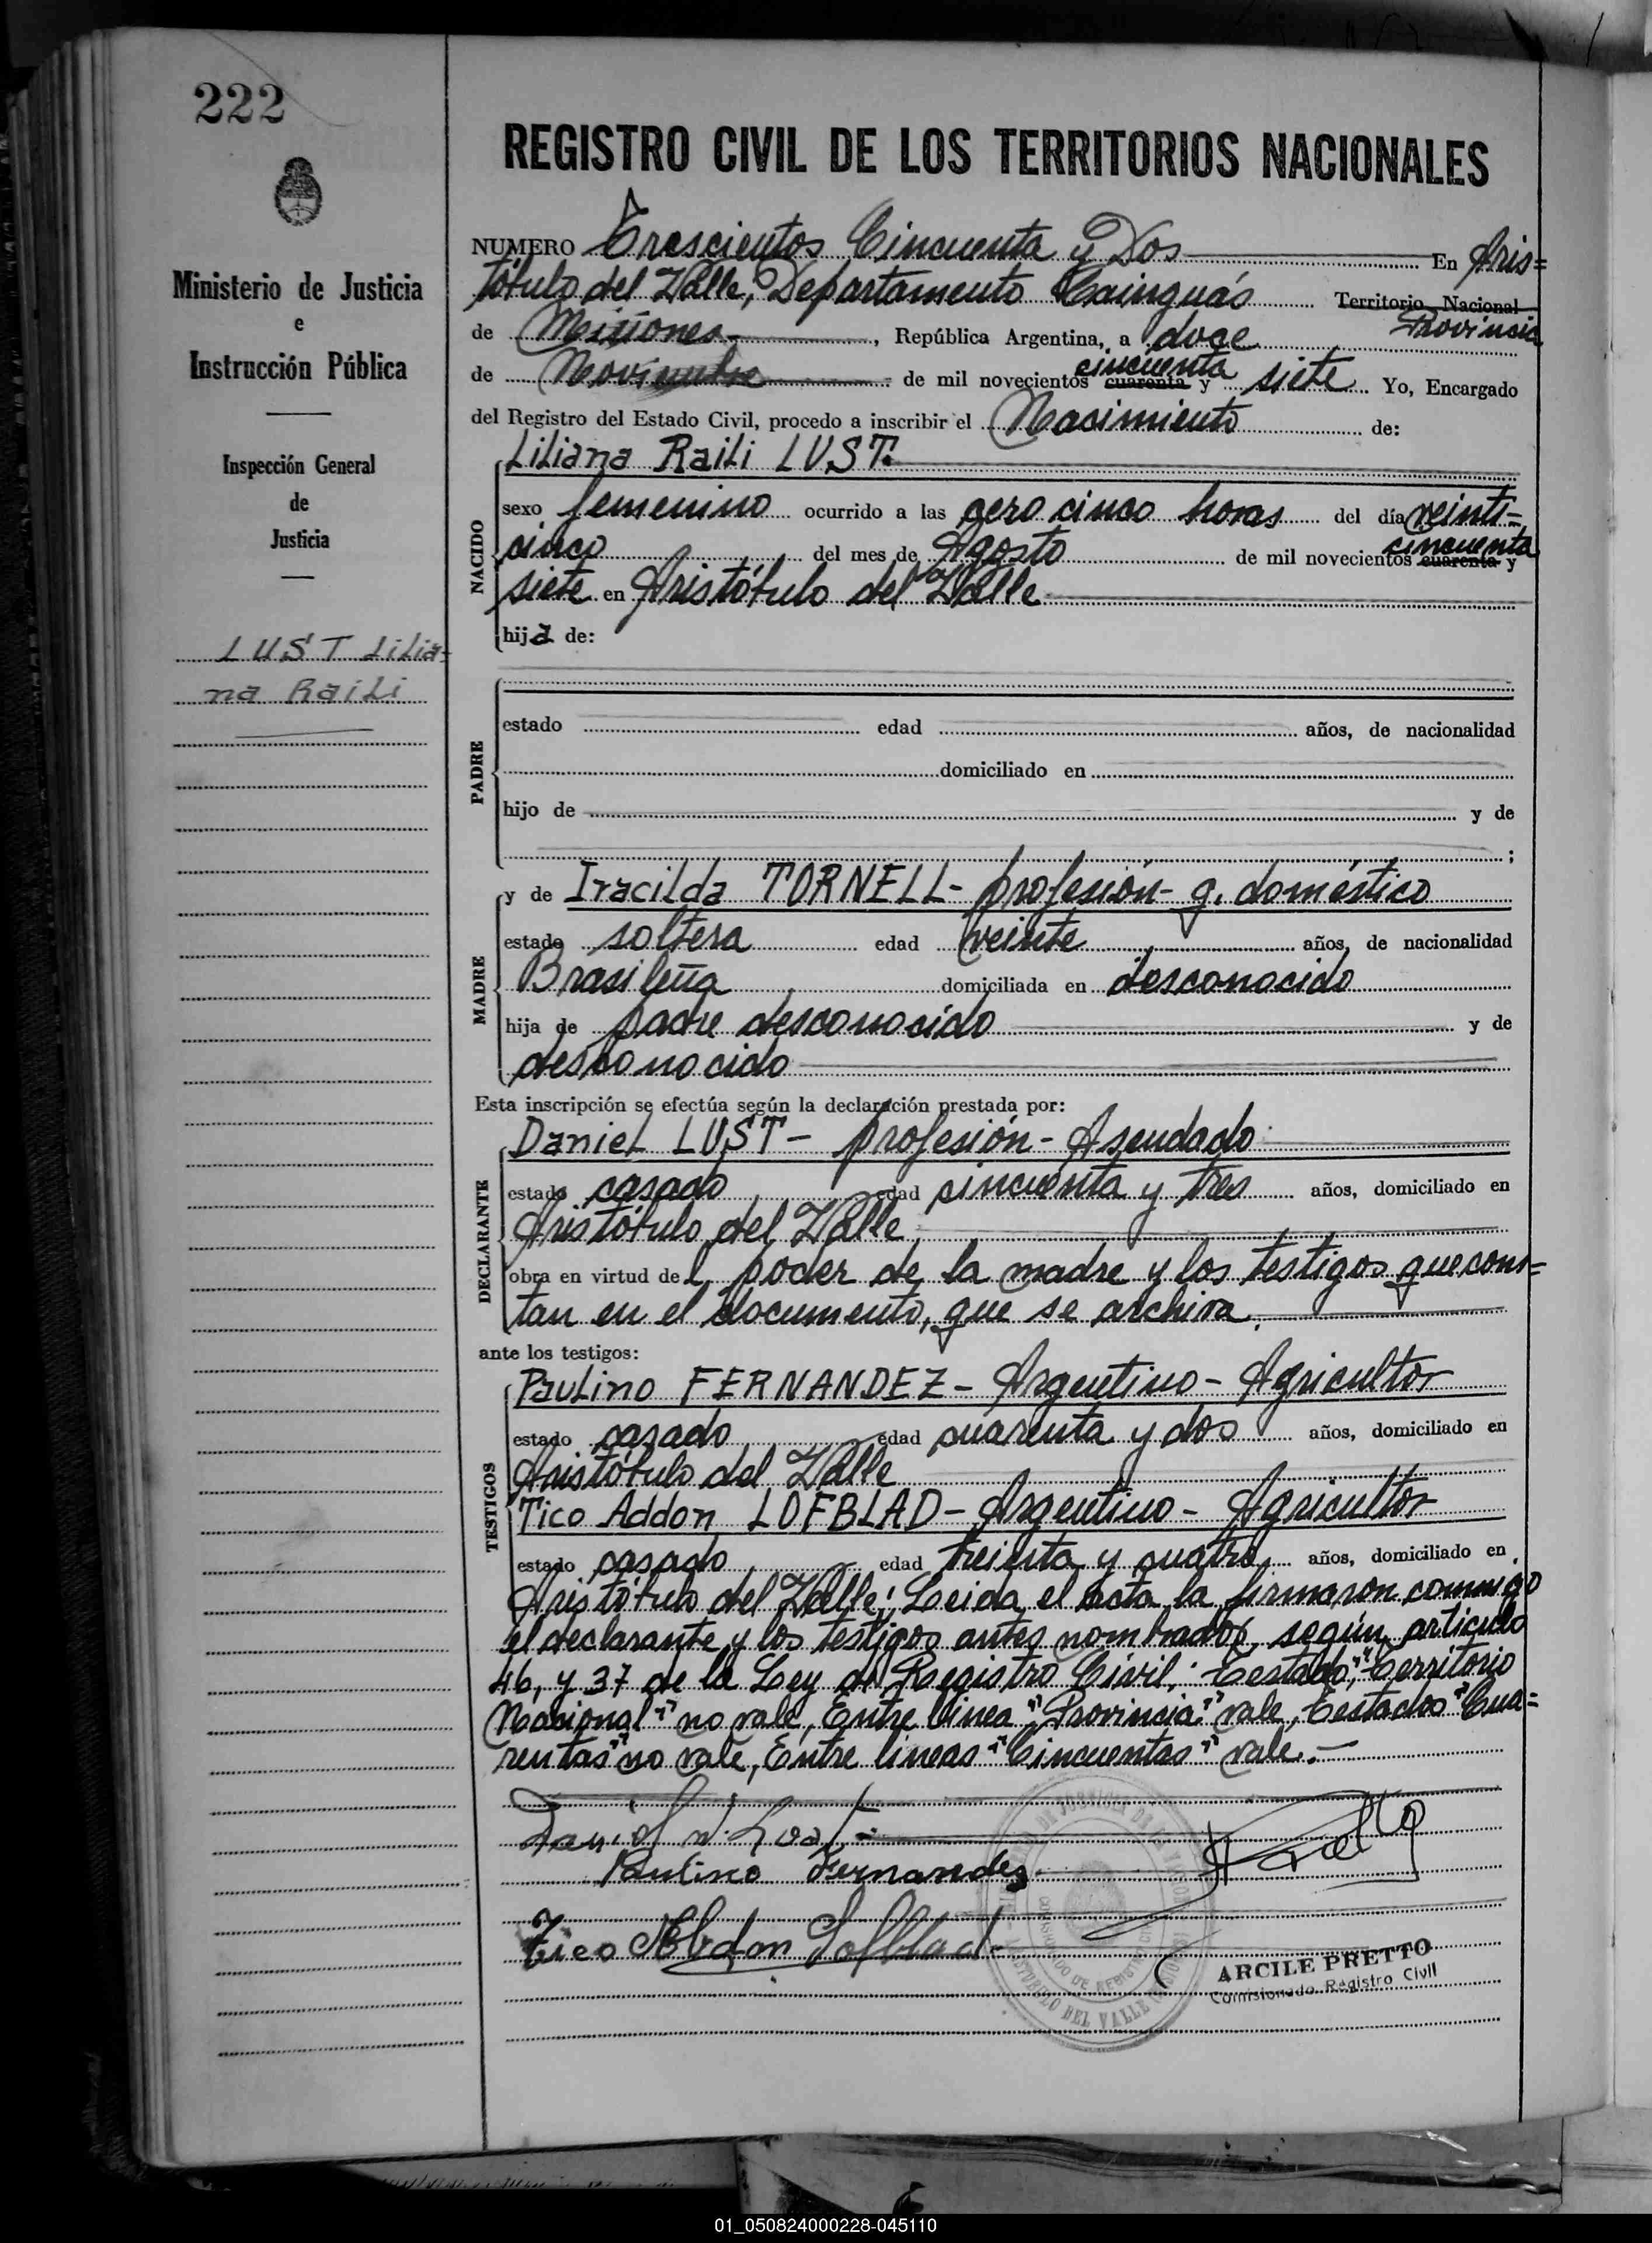 222
REGISTRO CIVIL DE LOS TERRITORIOS NACIONALES
Ministerio de Justicia
e
Instrucción Pública
Inspección General
de
Justicia
LUST Lilia-
na Raili
NUMERO Trescientos Cincuenta y Dos En Aris=
tóbulo del Valle, Departamento Cainguás Territorio Nacional
Provincia
de Misiones, República Argentina, a doce
de Noviembre de mil novecientos cuarenta y siete Yo, Encargado
cincuenta
del Registro del Estado Civil, procedo a inscribir el Nacimiento de:
NACIDO
Liliana Raili LUST.
sexo femenino ocurrido a las cero cinco horas del día veinti=
cinco del mes de Agosto de mil novecientos cuarenta y
cincuenta
siete en Aristóbulo del Valle
hija de:
PADRE
estado edad años, de nacionalidad
domiciliado en
hijo de y de
;
MADRE
y de Iracilda TORNELL- profesión- q. doméstico
estado soltera edad veinte años, de nacionalidad
Brasileña domiciliada en desconocido
hija de padre desconocido y de
desconocido
Esta inscripción se efectúa según la declaración prestada por:
DECLARANTE
Daniel LUST- profesión- Asendado
estado casado edad cincuenta y tres años, domiciliado en
Aristóbulo del Valle
obra en virtud del poder de la madre y los testigos que cons=
tan en el documento, que se archiva.
ante los testigos:
TESTIGOS
Paulino FERNANDEZ- Argentino- Agricultor
estado casado edad cuarenta y dos años, domiciliado en
Aristóbulo del Valle
Tico Addon LOFBLAD- Argentino- Agricultor
estado casado edad treinta y cuatro años, domiciliado en
Aristóbulo del Valle; Leida el acta la firmaron conmigo
el declarante y los testigos antes nombrados, según articulo
46, y 37 de la Ley de Registro Civil: Testado, "Territorio
Nacional" no vale, Entre linea "Provincia" vale, Testados "Cua=
rentas" no vale, Entre lineas "Cincuentas" vale.-
Daniel N. Lust
Paulino Fernandez
Tico Abdon Lofblad
ARCILE PRETTO
Comisionado Registro Civil
01_050824000228-045110